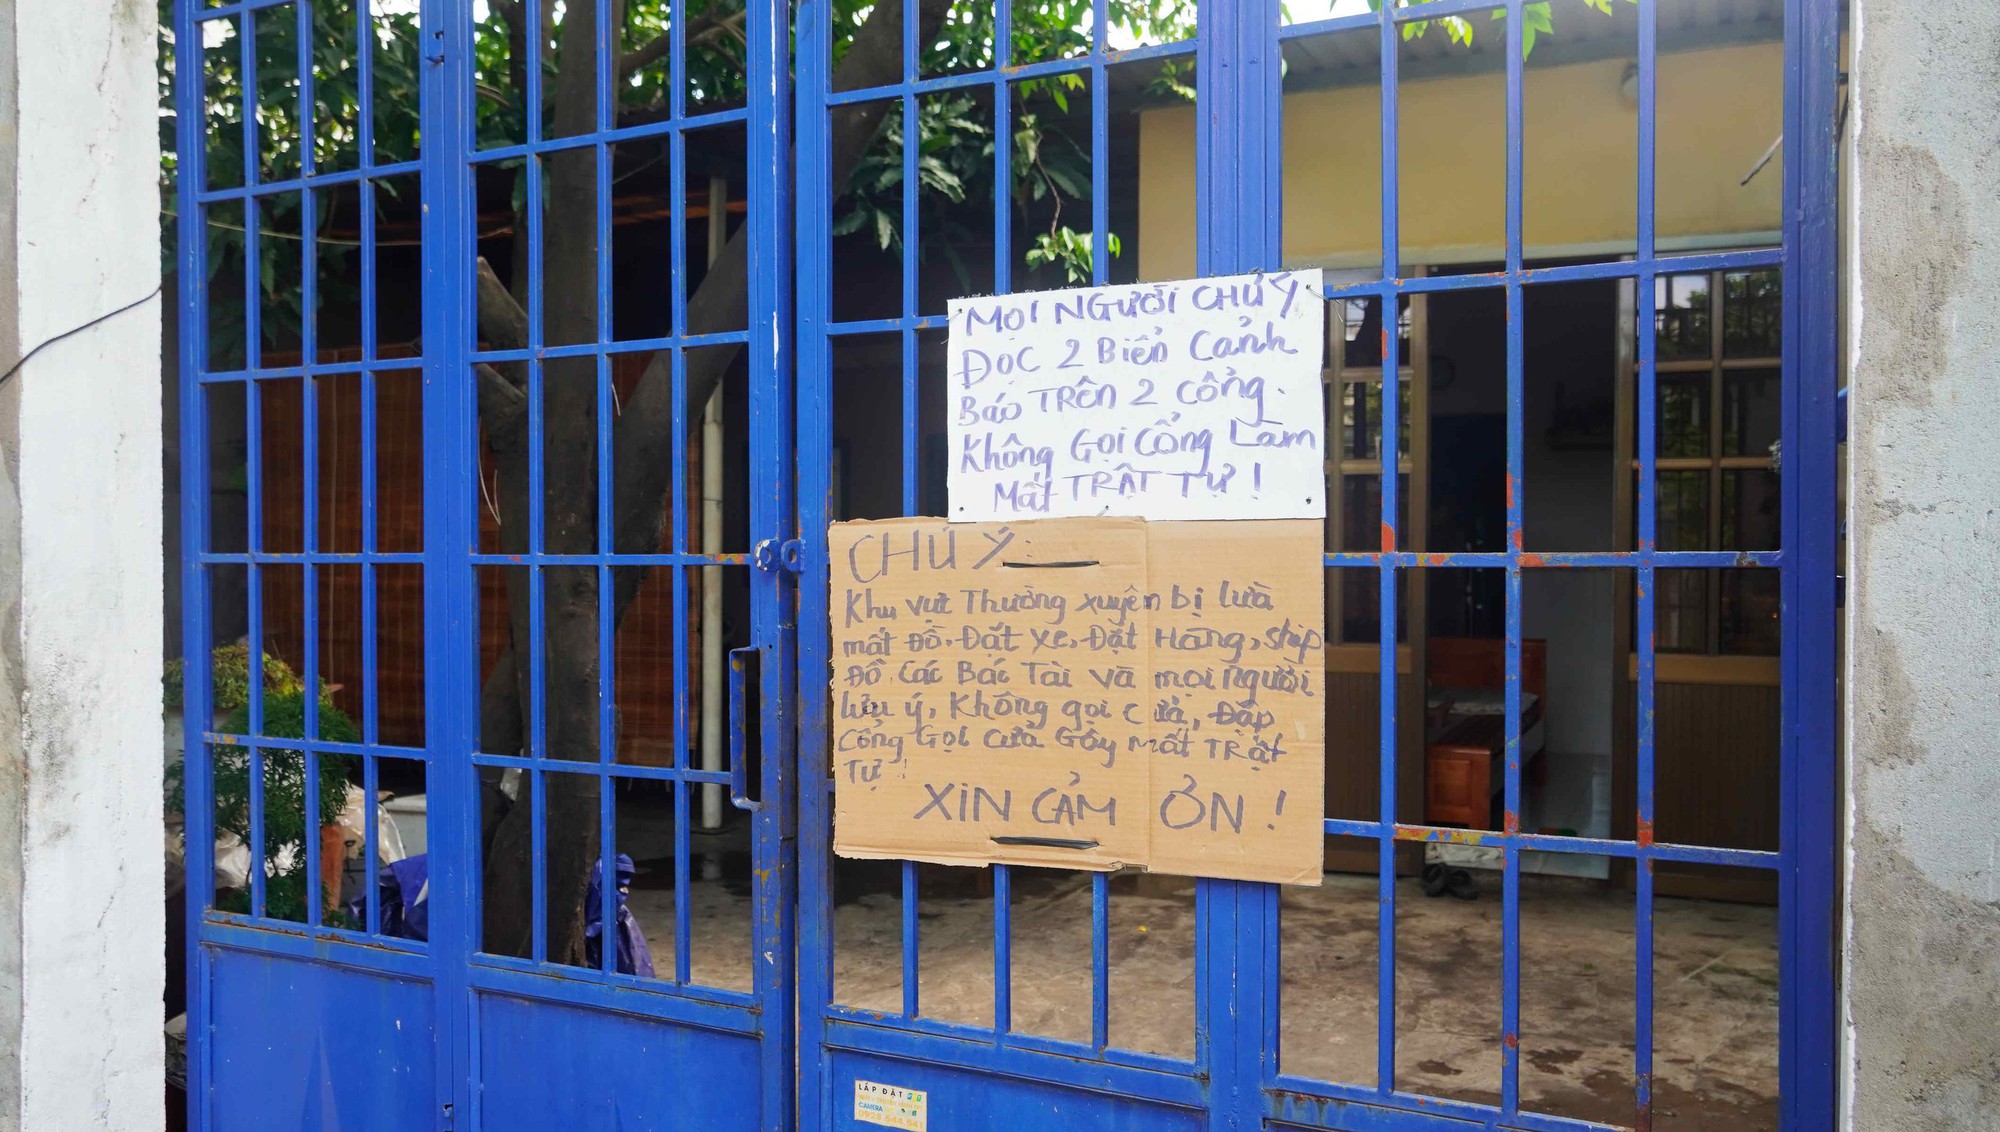 MỌI NGƯỜI CHÚ Ý
ĐỌC 2 Biển Cảnh
Báo TRÊN 2 Cổng.
Không Gọi Cổng Làm
Mất TRẬT TỰ !
CHÚ Ý:
Khu vực Thường xuyên bị lừa
mất Đồ, Đặt xe, Đặt Hàng, ship
Đồ. Các Bác Tài và mọi người
lưu ý, Không gọi cửa, Đập
Cổng Gọi cửa Gây Mất TRẬT
TỰ !
XIN CẢM ƠN !
LẮP ĐẶT
CAMERA
0928.644.541